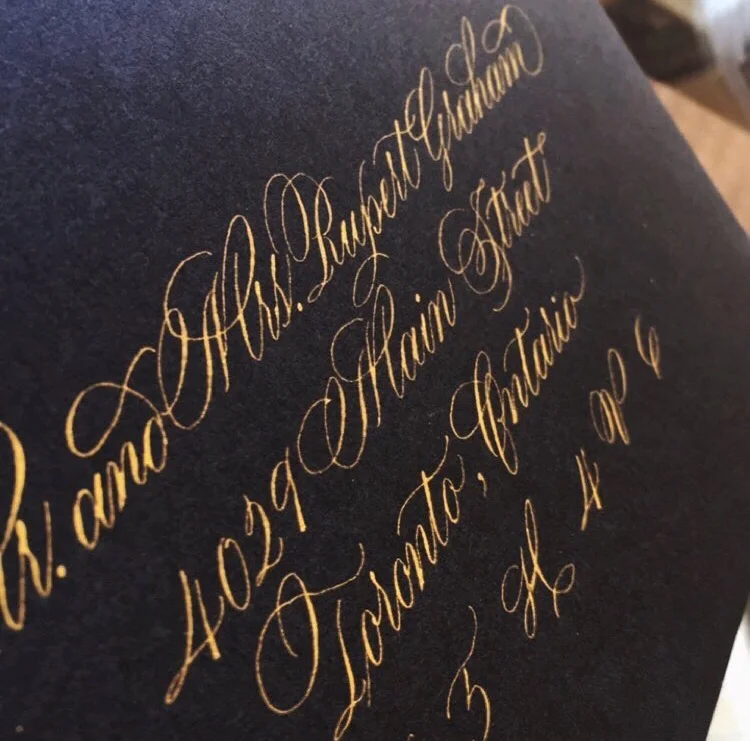 r. and Mrs. Rupert Graham
4029 Main Street
Toronto, Ontario
3 H 4 P 6